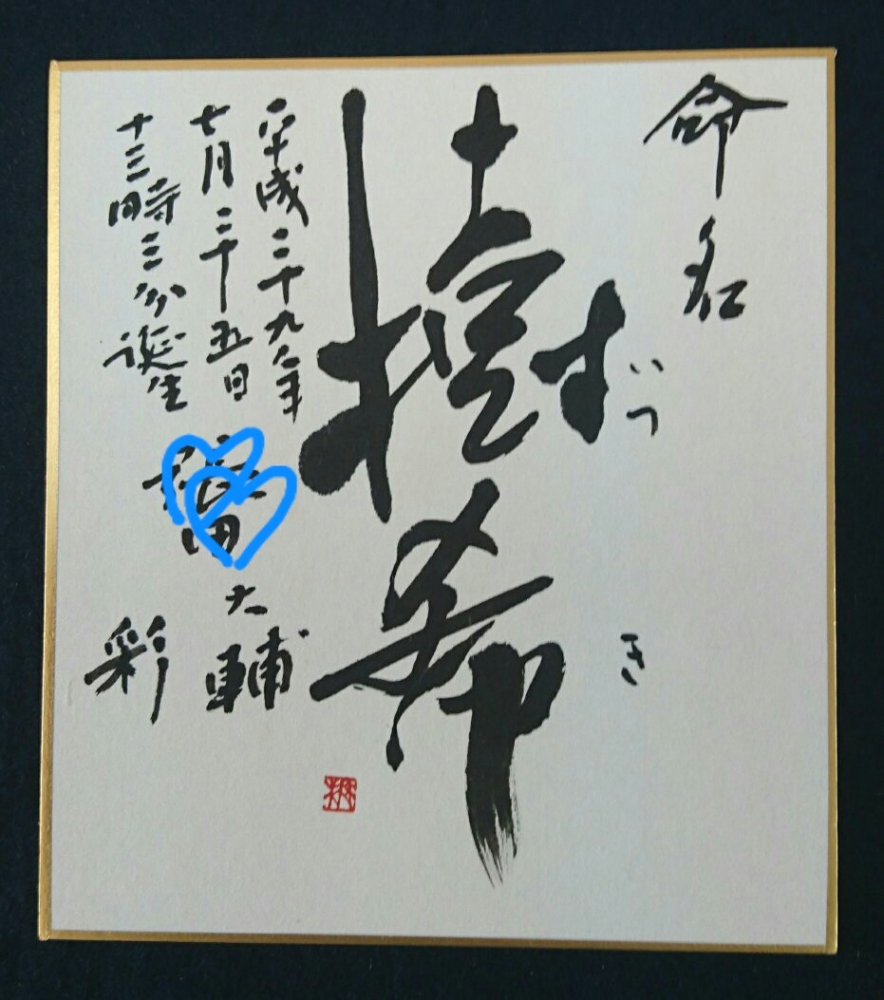 命名
いつき
樹希
平成二十九年
七月二十五日
十三時三分誕生
大輔
彩